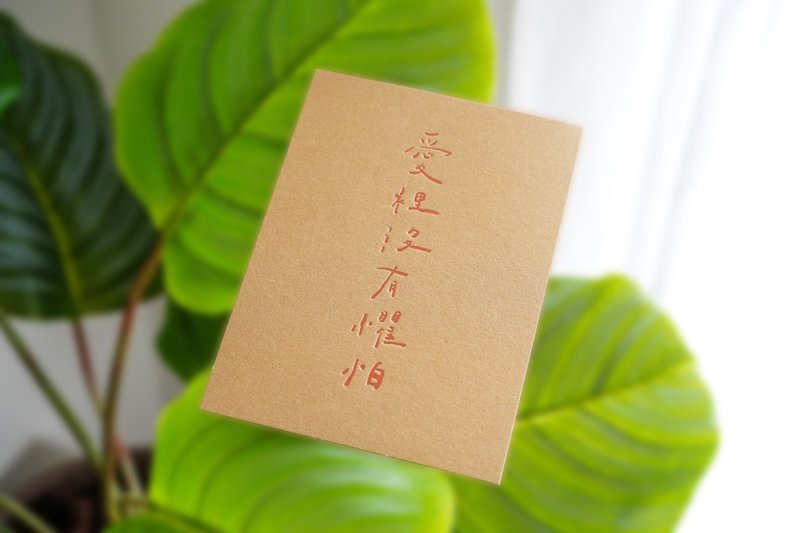 愛裡沒有懼怕